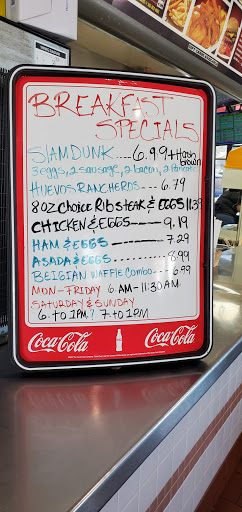 BREAKFAST
SPECIALS
SLAMDUNK---6.99+Hash brown
3eggs, 2 sausage, 2 bacon, 2 Pancakes
HUEVOS RANCHEROS --- 6.79
8 OZ CHOICE Rib STEAK & EGGS 11.39
CHICKEN & EGGS ------ 9.19
HAM & EGGS -------- 7.29
ASADA & EGGS -------- 8.99
BElGIAN WAFFLE COMBO -- 6.99
MON-FRIDAY 6AM-11:30AM
SATURDAY & SUNDAY
6 TO 1PM ? 7 TO 1PM
Coca-Cola Coca-Cola